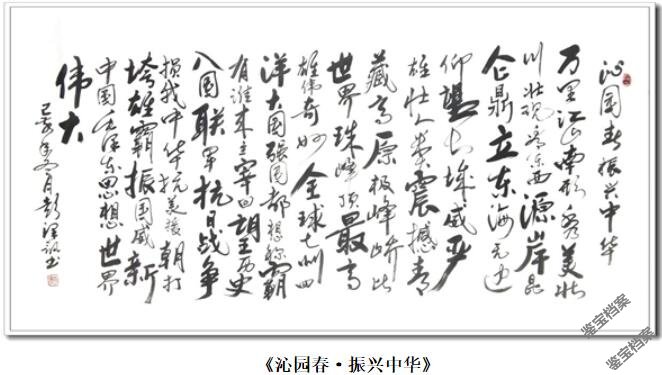 沁园春振兴中华
万里江山南秀美壮
川壮观看东西源岸昆
仑鼎立东海无边
仰望长城威严
雄壮人类震撼青
藏高原极峰比
世界珠峰顶最高
雄伟奇妙全球七州四
洋大国强国都想称霸
有谁来主宰回望历史
八国联军抗日战争
损我中华抗美援朝打
垮雄霸振国威新
中国毛泽东思想世界
伟大
己亥年冬月彭泽书
《沁园春·振兴中华》
鉴宝档案
鉴宝档案